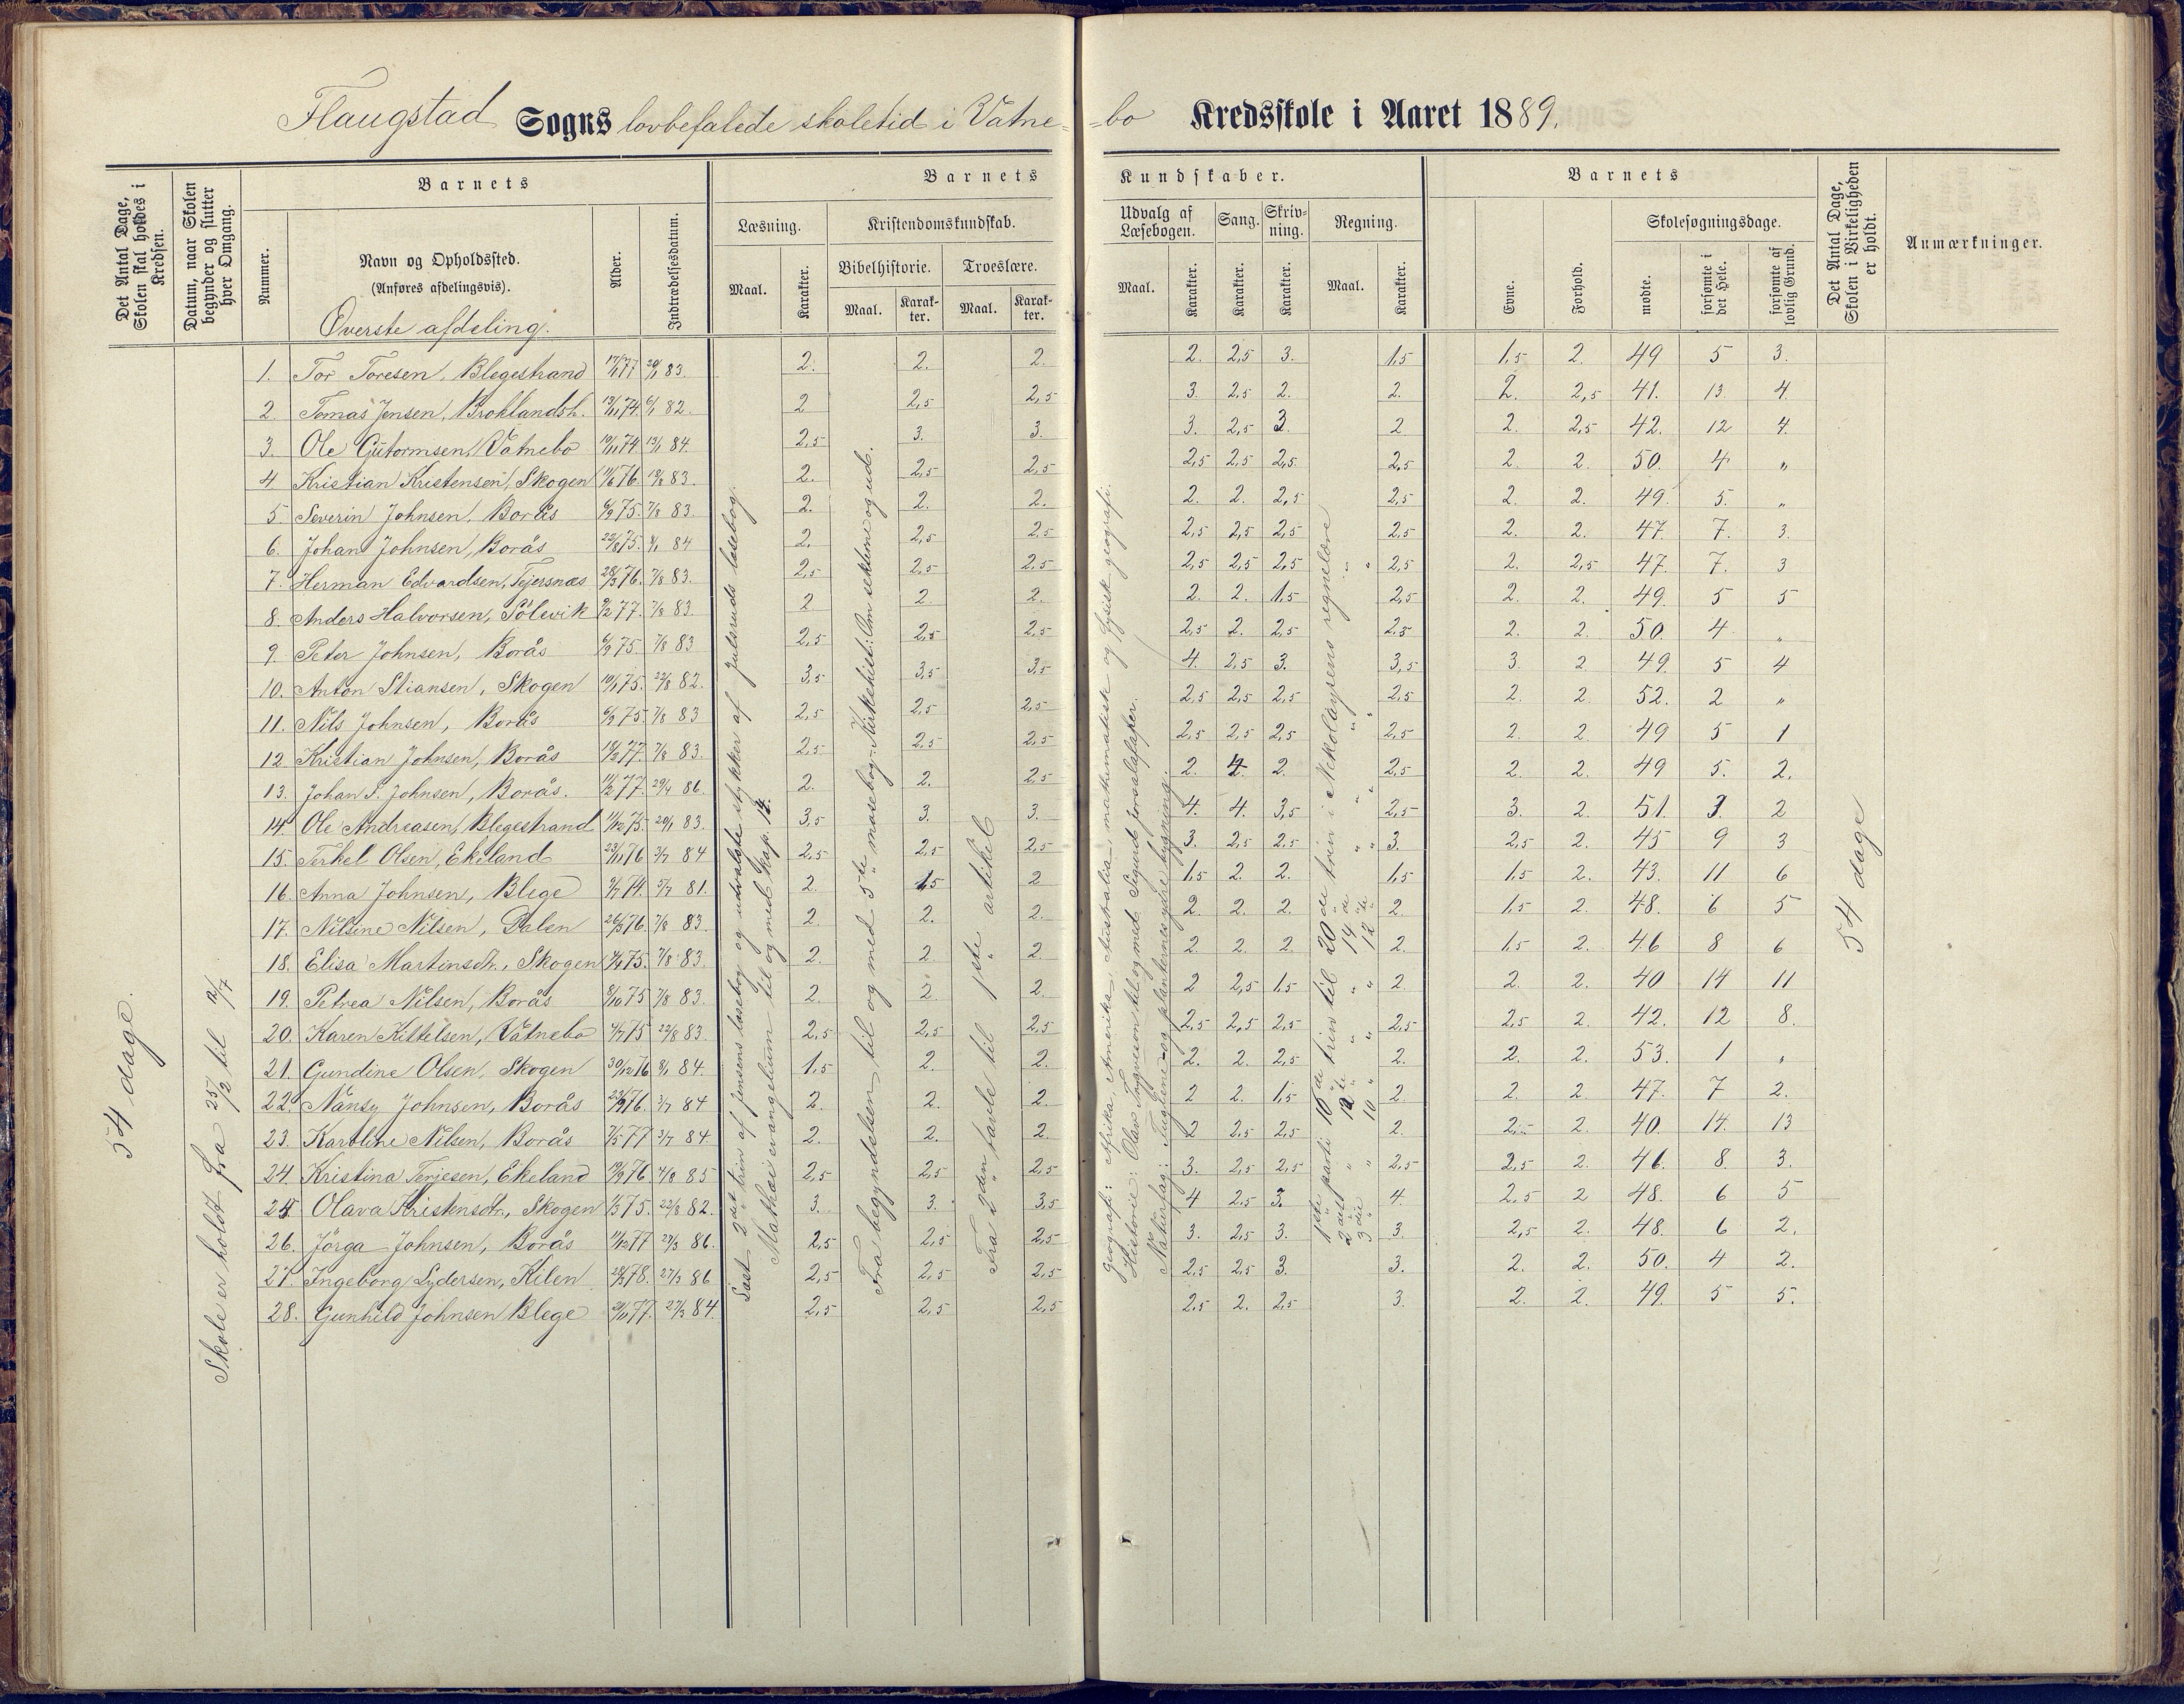 Flaugstad Sogns lovbefalede skoletid i Vatne- -bo Kredsskole i Aaret 1889.
Det Antal Dage, Skolen skal holdes i Kredsen. | Datum, naar Skolen begynder og slutter hver Omgang. | Barnets | Barnets Kundskaber. | Barnets | Det Antal Dage, Skolen i Virkeligheden er holdt. | Anmærkninger.
Nummer. | Navn og Opholdssted. (Anføres afdelingsvis). | Alder. | Indtrædelsesdatum. | Læsning. | Kristendomskundskab. | Udvalg af Læsebogen. | Sang. | Skrivning. | Regning. | Evne. | Forhold. | Skolesøgningsdage.
Maal. | Karakter. | Bibelhistorie. Maal. | Karakter. | Troeslære. Maal. | Karakter. | Maal. | Karakter. | Karakter. | Karakter. | Maal. | Karakter. | mødte. | forsømte i det Hele. | forsømte af lovlig Grund.
Øverste afdeling.
1. Tor Toresen, Blegestrand 17/1 77 20/1 83. 2. 2. 2. 2. 2,5 3. 1,5 1,5 2. 49 5 3.
2 Tomas Jensen, Broklandsh. 13/11 74 6/1 82. 2 2,5 2,5 3. 2,5 2. 2. 2. 2,5 41. 13. 4.
3. Ole Gutormsen, Vatnebo 19/11 74 13/1 84. 2,5 3. 3. 3. 2,5 3. 2 2. 2,5 42. 12 4.
4 Kristian Kristensen, Skogen 76. 83. 2. 2,5 2,5 2,5 2,5 2,5 2,5 2 2. 50. 4 "
5. Severin Johnsen, Borås 6/9 75. 7/8 83. 2. 2. 2. 2. 2. 2,5 2,5 2. 2. 49. 5. "
6. Johan Johnsen, Borås 22/8 75. 84 2. 2,5 2,5 2,5 2,5 2,5 2,5 2. 2. 47. 7. 3.
7. Herman Edvardsen, Tejersnæs 28/3 76. 7/8 83. 2,5 2,5 2,5 2,5 2,5 2,5 2,5 2. 2,5 47. 7. 3
8. Anders Halvorsen, Sölevik 9/2 77. 7/8 83. 2 2. 2. 2. 2. 1,5 2,5 2. 2. 49. 5 5
9. Peter Johnsen, Borås 6/9 75. 7/8 83 2,5 2,5 2,5 2,5 2. 2,5 2,5 2. 2. 50. 4 "
10. Anton Stiansen, Skogen 10/1 75. 22/8 82. 3,5 3,5 3,5 4. 2,5 3. 3,5 3. 2 49. 5 4
11. Nils Johnsen, Borås 6/9 75. 7/8 83 2,5 2,5 2,5 2,5 2,5 2,5 2,5 2. 2 52. 2 "
12. Kristian Johnsen, Borås 77. 7/8 83. 2,5 2,5 2,5 2,5 2,5 2,5 2,5 2. 2. 49 5 1
13. Johan S. Johnsen, Borås. 11/2 77. 29/4 86. 2. 2. 2,5 2. 4. 2. 2,5 2. 2. 49 5. 2.
14. Ole Andreasen, Blegestrand 11/12 75. 20/1 83. 3,5 3. 3. 4. 4. 3,5 2,5 3. 2. 51. 3. 2
15. Terkel Olsen, Ekeland 23/11 76 3/7 84 2,5 2,5 2,5 3. 2,5 2,5 3. 2,5 2. 45 9 3
16. Anna Johnsen, Blege 74. 81. 2. 1,5 2 1,5 2. 2. 1,5 1,5 2. 43. 11 6
17. Nilsine Nilsen, Dalen 26/3 76. 7/8 83. 2. 2. 2. 2. 2. 2. 2. 1,5 2. 48. 6 5
18. Elisa Martinsdr., Skogen 75. 7/8 83. 2. 2 2 2 2. 2. 2. 1,5 2. 46 8 6
19. Petrea Nilsen, Borås 8/10 75 7/8 83. 2. 2. 2. 2 2,5 1,5 2. 2. 2. 40 14 11
20. Karen Kittelsen, Vatnebo 4/7 75 22/8 83. 2,5 2,5 2,5 2,5 2,5 2,5 2,5 2,5 2. 42. 12 8.
21. Gundine Olsen, Skogen 30/12 76 84. 1,5 2. 2. 2. 2. 2,5 2. 2. 2. 53. 1 "
22. Nansy Johnsen, Borås 23/9 76. 3/7 84 2. 2. 2. 2 2. 1,5 2. 2. 2. 47. 7 2.
23. Karoline Nilsen, Borås 7/5 77 3/7 84. 2. 2. 2. 2 2,5 2,5 2. 2. 40. 14. 13
24. Kristina Terjesen, Ekeland 76 4/8 85 2,5 2,5 2,5 3. 2,5 2,5 2,5 2,5 2. 46. 8. 3.
25 Olava Kristensdtr., Skogen 75. 22/8 82. 3. 3. 3,5 4 2,5 3. 4. 2,5 2 48. 6 5
26. Jörga Johnsen, Borås 11/12 77 27/3 86. 2,5 2,5 2,5 3. 2,5 3. 3. 2,5 2. 48. 6 2.
27. Ingeborg Lydersen, Kilen 28/3 78. 27/3 86 2,5 2,5 2,5 2,5 2,5 3. 3. 2. 2. 50. 4 2.
28. Gunhild Johnsen Blege 77. 27/3 84. 2,5 2,5 2,5 2,5 2. 2,5 3. 2. 2. 49. 5 5.
54 dage.
Skole er holdt fra 25/2 til 12/7
Læst 2det trin af Jensens læsebog og udvalgte stykker af Julsruds læsebog.
Mathæi evangelium til og med kap. 14.
Fra begyndelsen til og med 5te mosebog. Kirkehist: Om sekterne og ud.
Fra 2den tavle til 1ste artikel
geografi: Afrika, Amerika, Australia, mathematiske og fysisk geografi.
Historie: Olav Trygveson til og med Sigurd Jorsalafarer.
Naturfag: Fuglene og planternes ydre bygning.
1ste parti 16de trin til 20de trin i Nekolaysens regnelære
2det " 12te " " 14de " " "
3die " 10 " " 12te " " "
54 dage